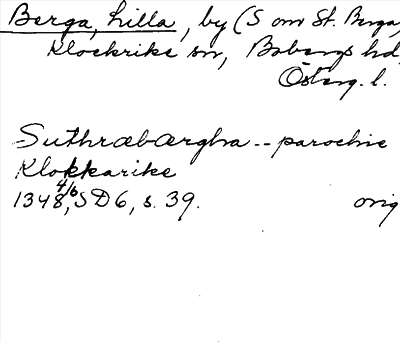 Berga, lilla, by (S om St. Berga,
Klockrike sn, Bobergs hd,
Österg. l.
Suthræbærgha -- parochie
Klokkarike
1348 4/6, SD 6, s. 39. orig